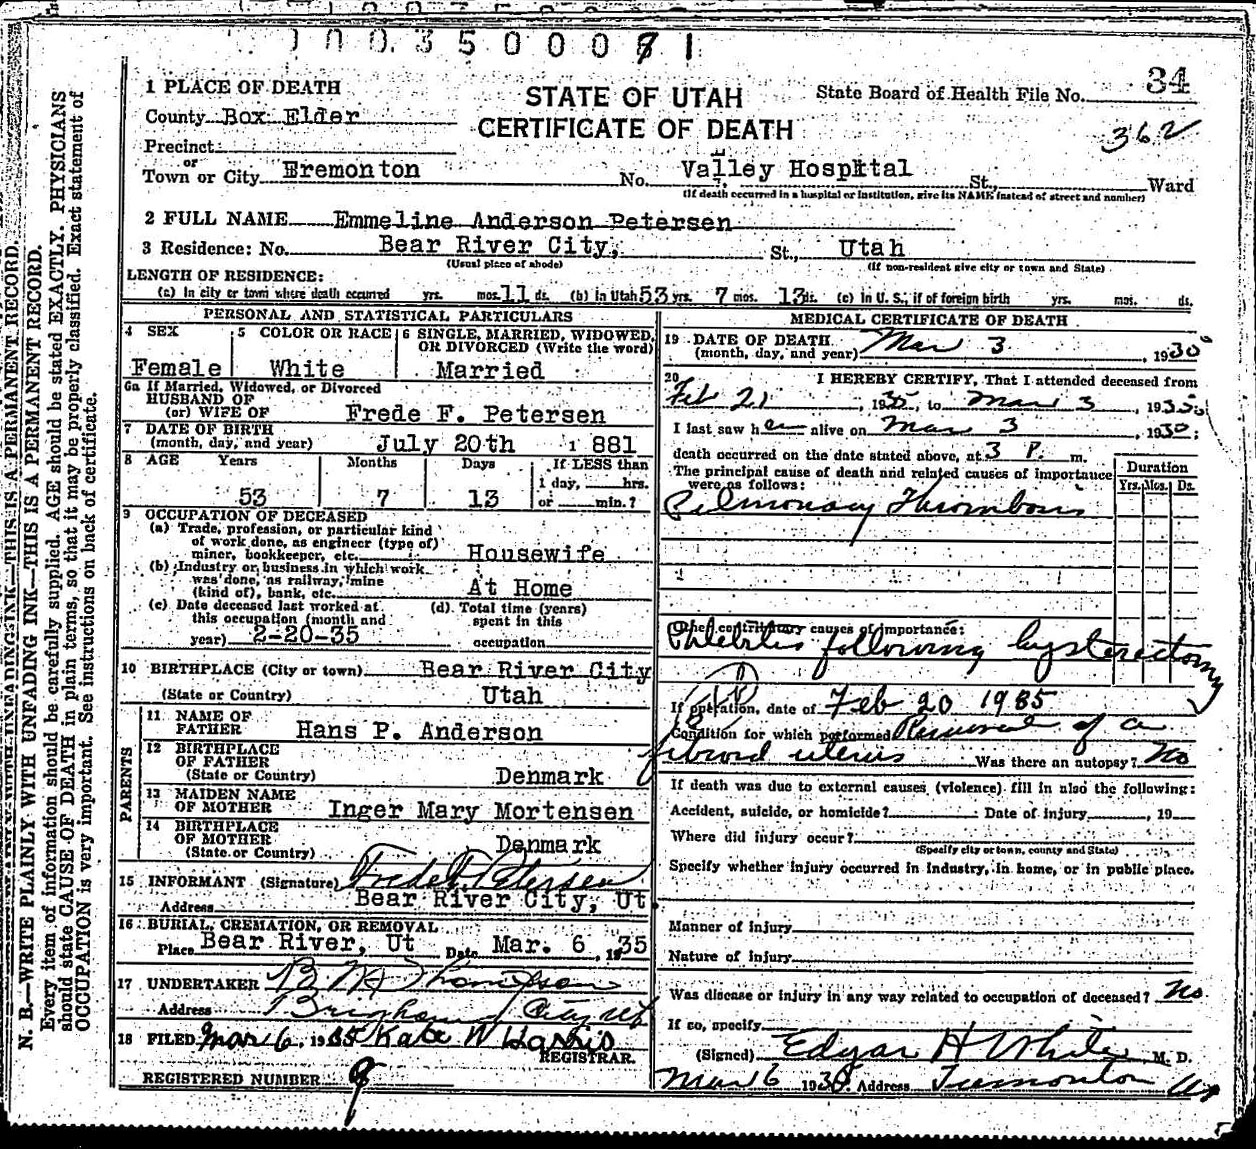 1003500091
34
1 PLACE OF DEATH
STATE OF UTAH
State Board of Health File No.
County Box Elder
CERTIFICATE OF DEATH
362
Precinct
or
Town or City Eremonton No. Valley Hospital St., Ward
(If death occurred in a hospital or institution, give its NAME instead of street and number)
2 FULL NAME Emmeline Anderson Petersen
3 Residence: No. Bear River City, St., Utah
(Usual place of abode) (If non-resident give city or town and State)
LENGTH OF RESIDENCE:
(a) In city or town where death occurred yrs. mos. 11 ds. (b) in Utah 53 yrs. 7 mos. 13 ds. (c) in U. S., if of foreign birth yrs. mos. ds.
PERSONAL AND STATISTICAL PARTICULARS
4 SEX
Female
5 COLOR OR RACE
White
6 SINGLE, MARRIED, WIDOWED, OR DIVORCED (Write the word)
Married
6a If Married, Widowed, or Divorced
HUSBAND OF
(or) WIFE OF Frede F. Petersen
7 DATE OF BIRTH
(month, day, and year) July 20th 1881
8 AGE Years Months Days If LESS than
1 day, hrs.
53 7 13 or min.?
9 OCCUPATION OF DECEASED
(a) Trade, profession, or particular kind
of work done, as engineer (type of)
miner, bookkeeper, etc. Housewife
(b) Industry or business in which work
was done, as railway, mine
(kind of), bank, etc. At Home
(c) Date deceased last worked at (d) Total time (years)
this occupation (month and spent in this
year) 2-20-35 occupation
10 BIRTHPLACE (City or town) Bear River City
(State or Country) Utah
PARENTS
11 NAME OF
FATHER Hans P. Anderson
12 BIRTHPLACE
OF FATHER
(State or Country) Denmark
13 MAIDEN NAME
OF MOTHER Inger Mary Mortensen
14 BIRTHPLACE
OF MOTHER
(State or Country) Denmark
15 INFORMANT (Signature) Frede F. Petersen
Address Bear River City, Ut.
16 BURIAL, CREMATION, OR REMOVAL
Place Bear River, Ut Date Mar. 6, 1935
17 UNDERTAKER B. M. Thompson
Address Brigham City Ut
18 FILED Mar 6, 1935 Kate W Harris
REGISTRAR.
REGISTERED NUMBER 9
MEDICAL CERTIFICATE OF DEATH
19 DATE OF DEATH
(month, day, and year) Mar 3, 1935
20 I HEREBY CERTIFY, That I attended deceased from
Feb 21, 1935, to Mar 3, 1935,
I last saw her alive on Mar 3, 1935;
death occurred on the date stated above, at 3 P. m.
The principal cause of death and related causes of importance
were as follows:
Duration
Yrs. Mos. Ds.
Pulmonary Thrombosis
Other contributory causes of importance:
Phlebitis following hysterectomy
If operation, date of Feb 20 1935
Condition for which performed Removal of a
fibroid uterus Was there an autopsy? No
If death was due to external causes (violence) fill in also the following:
Accident, suicide, or homicide? Date of injury, 19
Where did injury occur?
(Specify city or town, county and State)
Specify whether injury occurred in industry, in home, or in public place.
Manner of injury
Nature of injury
Was disease or injury in any way related to occupation of deceased? No
If so, specify
(Signed) Edgar H White M. D.
Mar 6 1935 Address Tremonton Ut
N. B.—WRITE PLAINLY WITH UNFADING INK—THIS IS A PERMANENT RECORD.
Every item of information should be carefully supplied. AGE should be stated EXACTLY. PHYSICIANS
should state CAUSE OF DEATH in plain terms, so that it may be properly classified. Exact statement of
OCCUPATION is very important. See instructions on back of certificate.